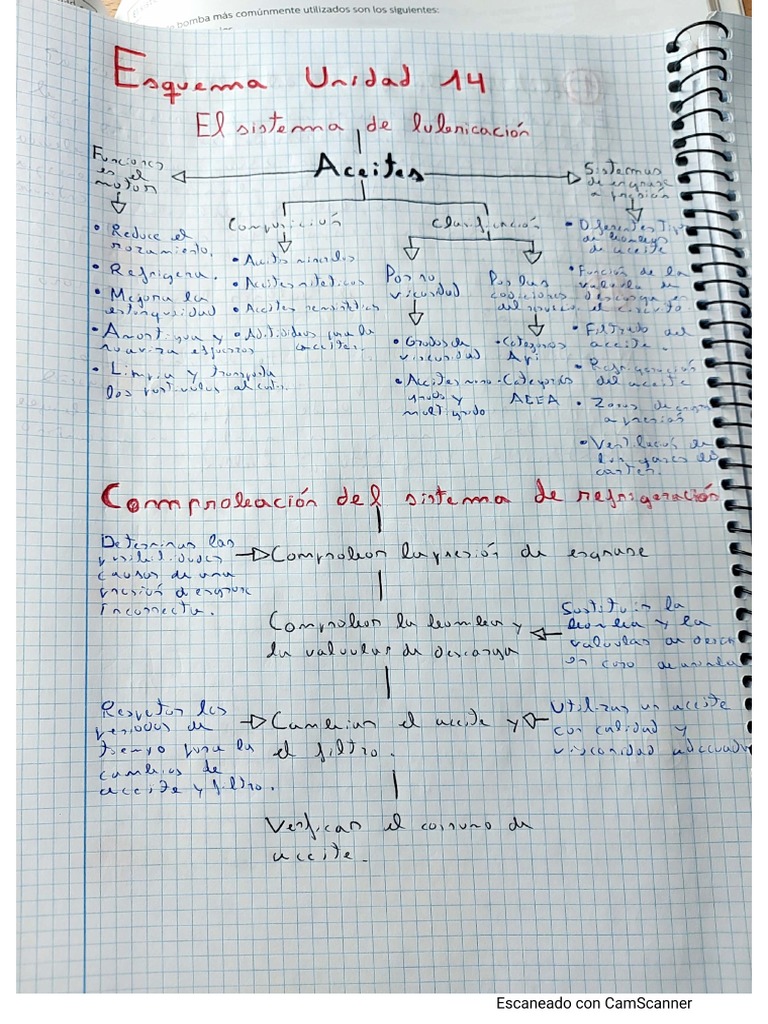 bomba más comúnmente utilizados son los siguientes:
Esquema Unidad 14
El sistema de lubricación
Aceites
Funciones
en el
motor
• Reduce el
rozamiento.
• Refrigera.
• Mejora la
estanqueidad
• Amortigua y
suaviza esfuerzos
• Limpia y transporta
las partículas al
Composición
• Aceites minerales
• Aceites sintéticos
• Aceites
• Aditivos para los
aceites.
Clasificación
Por su
viscosidad
• Grados de
viscosidad
• Aceites mono
grados y
multigrado
Por las
condiciones
del
• Categorías
Api
• Categorías
ACEA
Sistemas
de engrase
a presión
• Diferentes Tipos
de bombas
de aceite
• Función de la
valvula de
descarga en
el circuito
• Filtrado del
aceite.
• Refrigeración
del aceite
• Zonas de engrase
a presión
• Ventilación de
los gases del
carter.
Comprobación del sistema de refrigeración
Determinar las
posibilidades
causas de una
presión de engrase
Incorrecta.
Comprobar la presión de engrase
Comprobar la bomba y
la valvulas de descarga
Sustituir la
bomba y la
valvulas de desca
en caso de
Respetar los
periodos de
tiempo para los
cambios de
aceite y filtro.
Cambiar el aceite y
el filtro.
Utilizar un aceite
con calidad y
viscosidad adecuada
Verificar el consumo de
aceite.
Escaneado con CamScanner